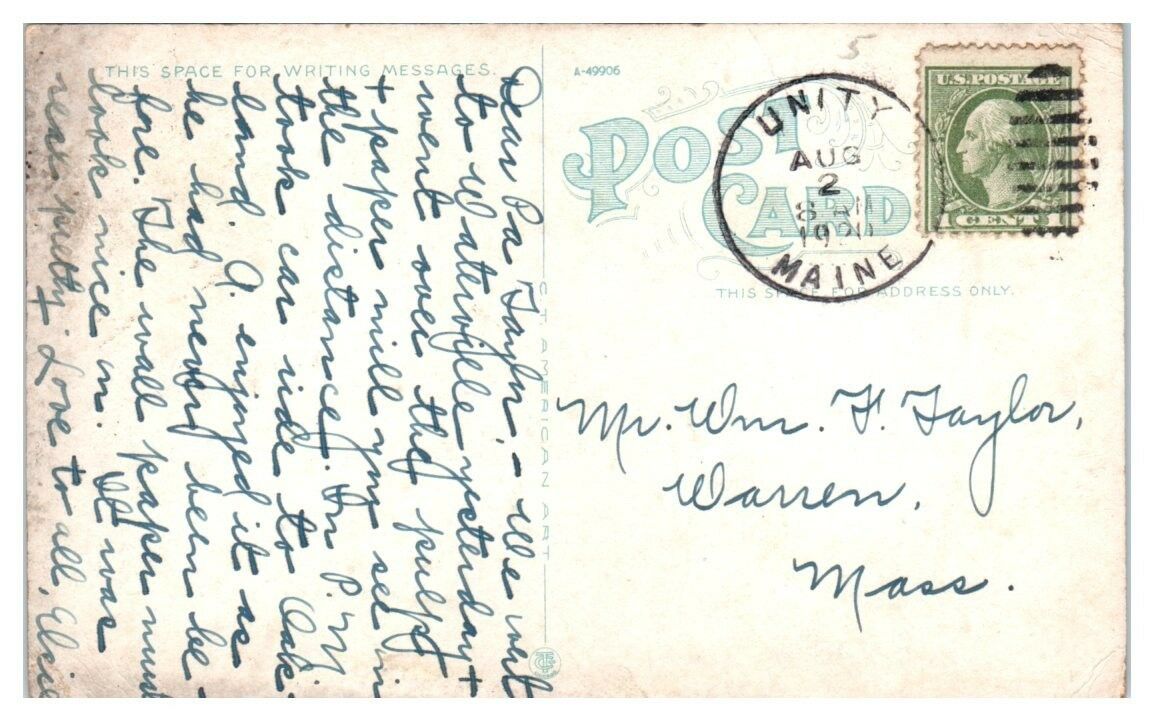 THIS SPACE FOR WRITING MESSAGES.
A-49906
POST CARD
THIS SPACE FOR ADDRESS ONLY.
UNITY
AUG
2
8 AM
1920
MAINE
U.S. POSTAGE
1 CENT 1
5
Dear Pa Taylor, - We went
to Waterville yesterday +
went over the pulp
+ paper mill you see in
the distance. In P.M.
took car ride to Oak-
land. A. enjoyed it as
he had never been be-
fore. The wall paper must
look nice in. It was
real pretty. Love to all, Elsie
C.T. AMERICAN ART
Mr. Wm. F. Taylor,
Warren,
Mass.